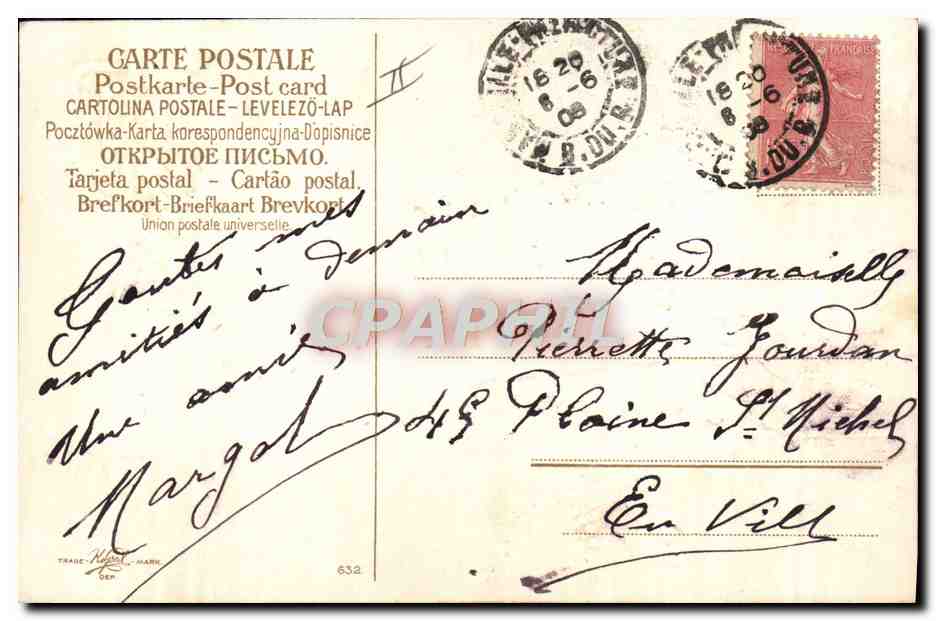 CARTE POSTALE
Postkarte-Post card
CARTOLINA POSTALE-LEVELEZŐ-LAP
Pocztówka-Karta korespondencyjna-Dopisnice
ОТКРЫТОЕ ПИСЬМО.
Tarjeta postal - Cartão postal.
Brefkort-Briefkaart Brevkort
Union postale universelle.
II
18 20
6 - 6
08
B. DU. R.
18 20
6 - 6
08
B. DU. R.
FRANÇAISE
Toutes mes
amitiés à demain
Une amie
Margot
Mademoiselle
Pierrette Jourdan
45 Plaine St Michel
En Vill
CPAPHIL
TRADE - MARK
DEP.
632